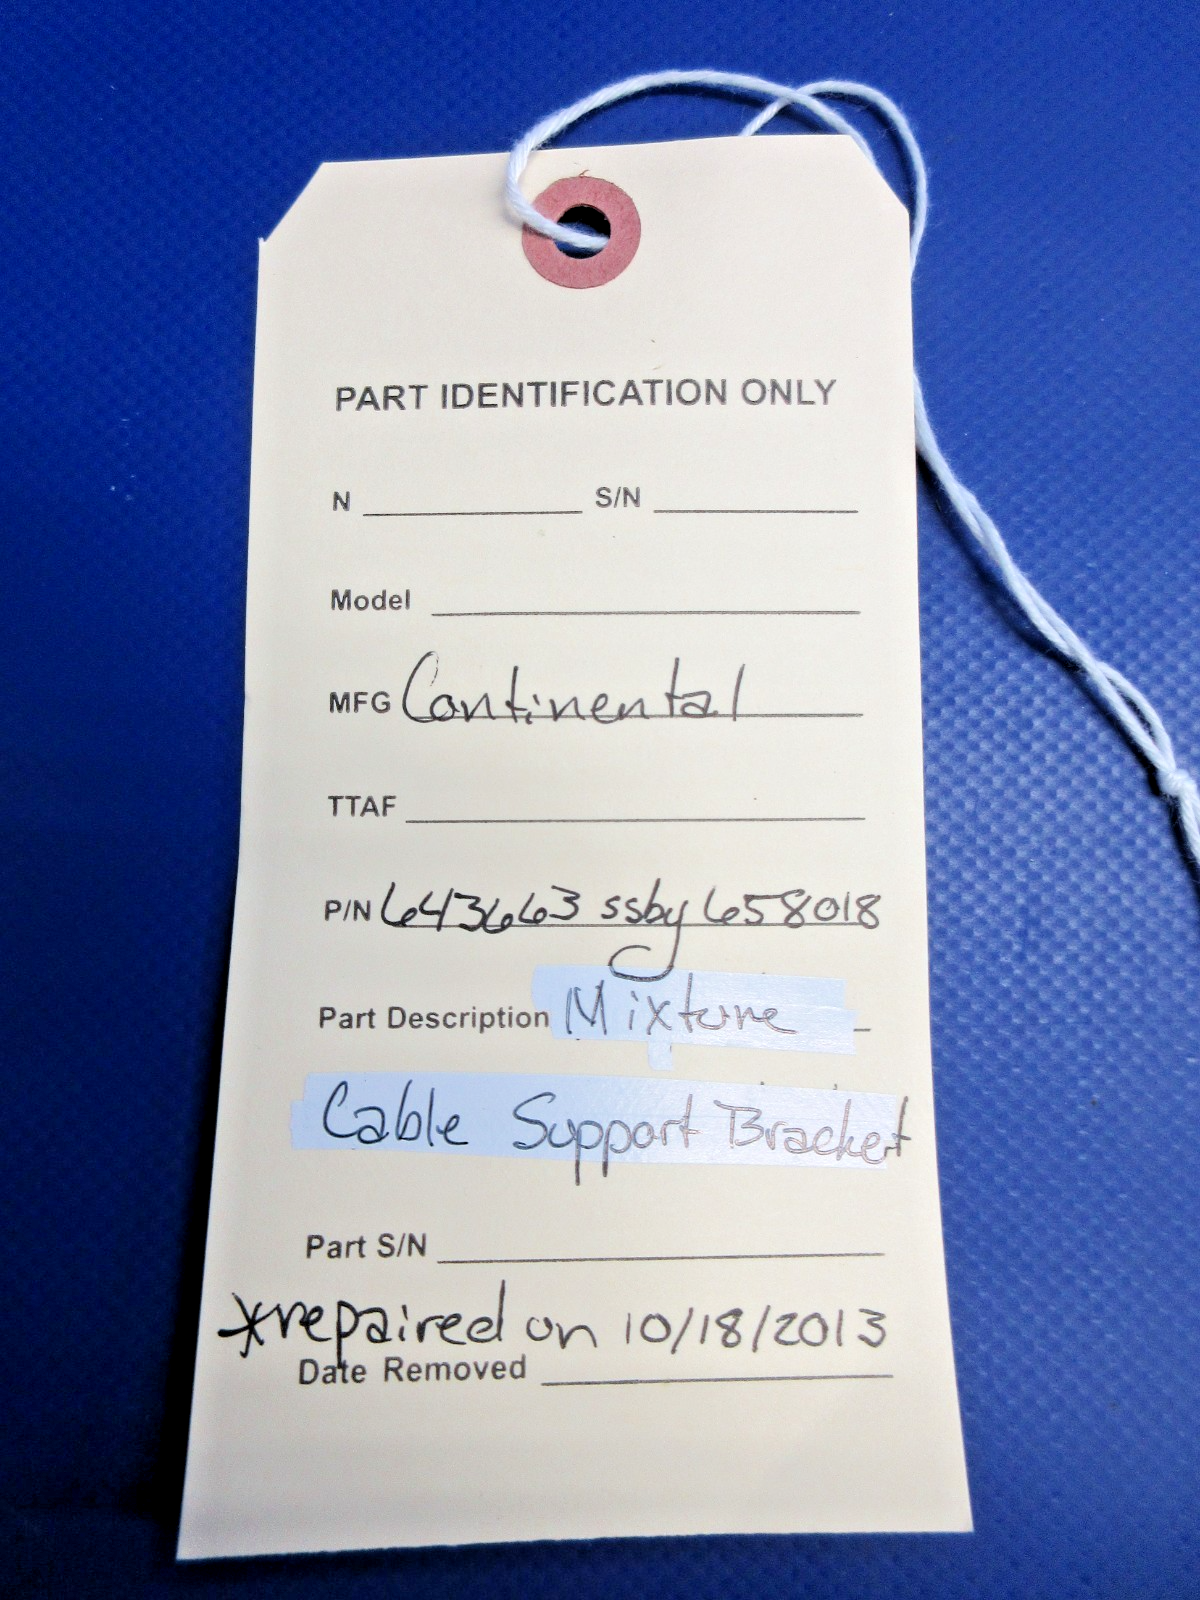 PART IDENTIFICATION ONLY
N S/N
Model
MFG Continental
TTAF
P/N 643663 ssby 658018
Part Description Mixture
Cable Support Bracket
Part S/N
*repaired on 10/18/2013
Date Removed